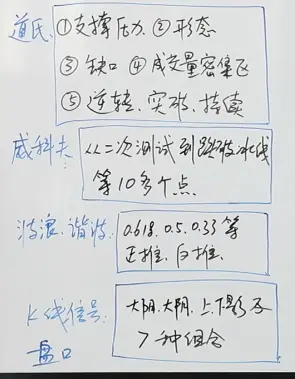 道氏: ①支撑压力 ②形态
③ 缺口 ④ 成交量密集区
⑤ 逆转、突破、持续
威科夫: 从二次测试到跌破冰线
等10多个点
波浪、谐波: 0.618、0.5、0.33 等
正推、反推、
K线信号: 大阴、大阳、上下影及
7种组合
盘口